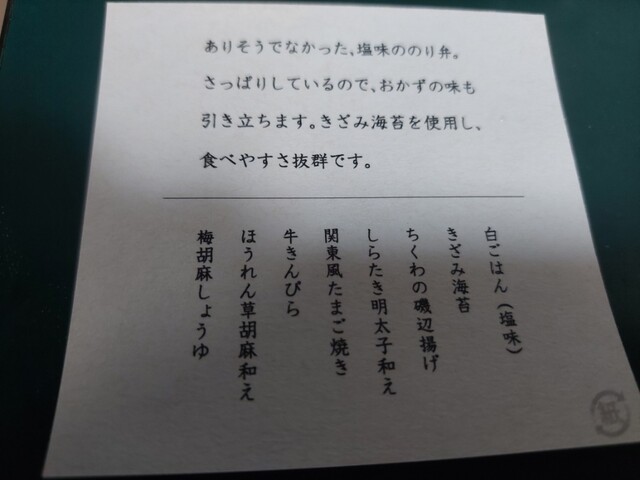 ありそうでなかった、塩味ののり弁。
さっぱりしているので、おかずの味も
引き立ちます。きざみ海苔を使用し、
食べやすさ抜群です。
白ごはん（塩味）
きざみ海苔
ちくわの磯辺揚げ
しらたき明太子和え
関東風たまご焼き
牛きんぴら
ほうれん草胡麻和え
梅胡麻しょうゆ
紙